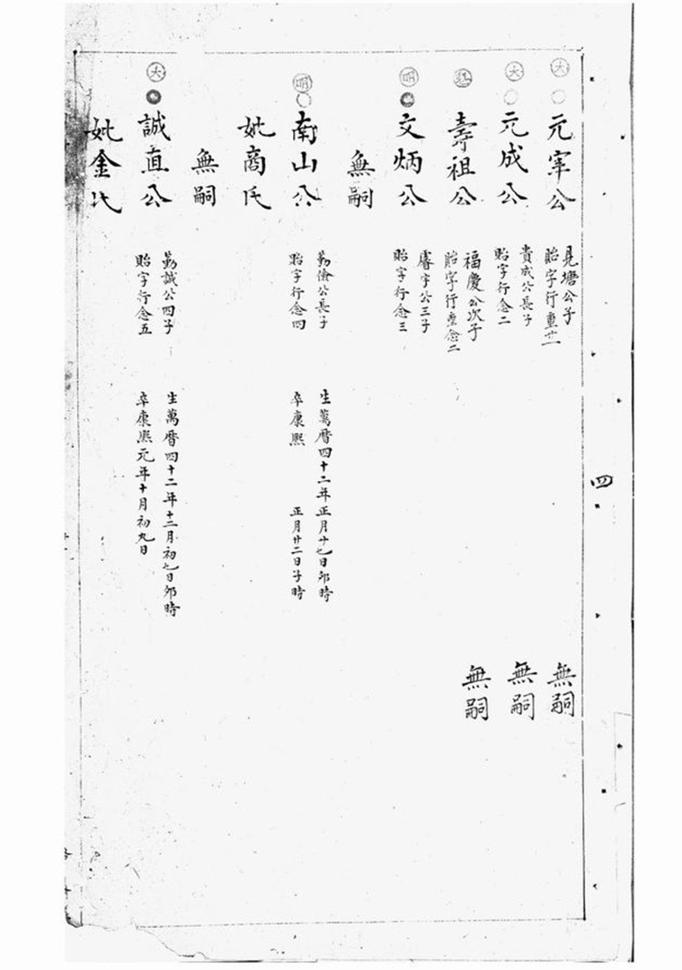 四
大
元宰公
見塘公子
貽字行重廿一
無嗣
大
元成公
貴成公長子
貽字行念二
無嗣
壽祖公
福慶公次子
貽字行重念二
無嗣
明
文炳公
睿宇公三子
貽字行念三
無嗣
明
南山公
勤儉公長子
貽字行念四
生萬曆四十二年正月十七日卯時
卒康熙 正月廿二日子時
妣商氏
無嗣
大
誠直公
勤誠公四子
貽字行念五
生萬曆四十二年十二月初七日卯時
卒康熙元年十月初九日
妣金氏